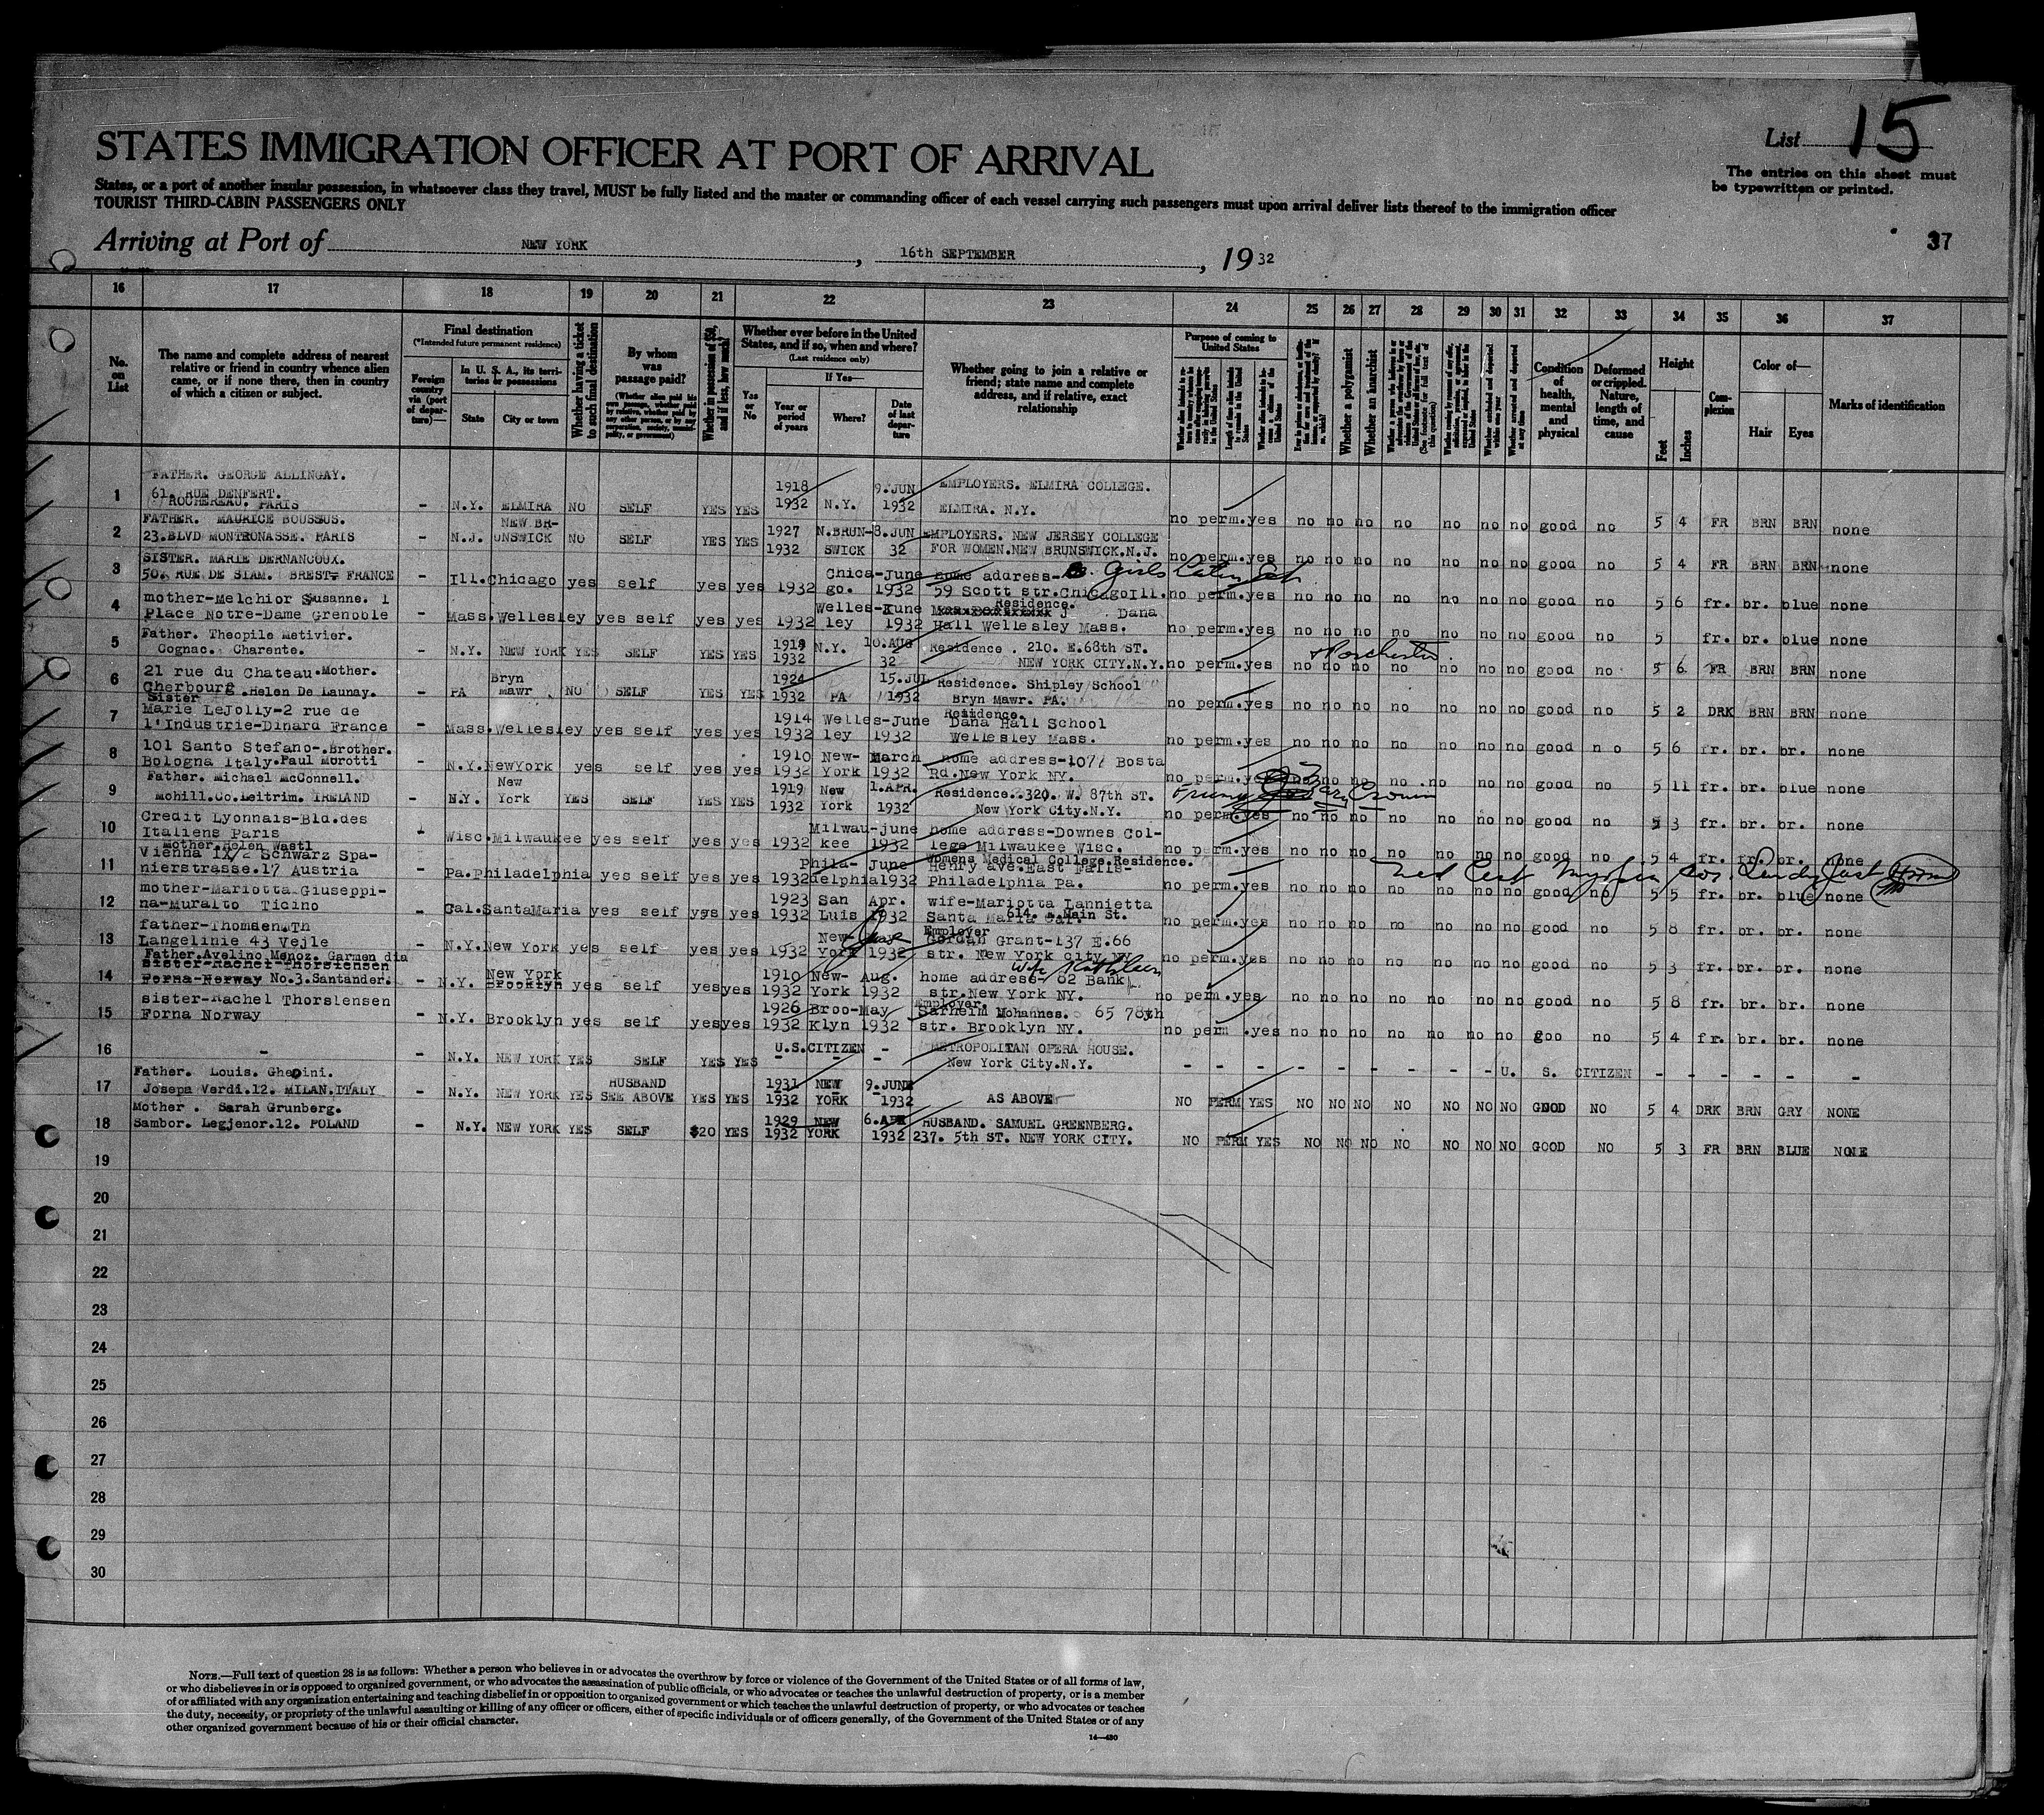 List 15
STATES IMMIGRATION OFFICER AT PORT OF ARRIVAL
The entries on this sheet must
be typewritten or printed.
States, or a port of another insular possession, in whatsoever class they travel, MUST be fully listed and the master or commanding officer of each vessel carrying such passengers must upon arrival deliver lists thereof to the immigration officer
TOURIST THIRD-CABIN PASSENGERS ONLY
Arriving at Port of NEW YORK, 16th SEPTEMBER, 19 32
37
16 17 18 19 20 21 22 23 24 25 26 27 28 29 30 31 32 33 34 35 36 37
No. on List
The name and complete address of nearest relative or friend in country whence alien came, or if none there, then in country of which a citizen or subject.
Final destination
(*Intended future permanent residence)
Foreign country via (port of departure)—
In U. S. A., its territories or possessions
State
City or town
Whether having a ticket to such final destination
By whom was passage paid?
Whether in possession of $50, and if less, how much?
Whether ever before in the United States, and if so, when and where?
(Last residence only)
Yes or No
If Yes—
Year or period of years
Where?
Date of last departure
Whether going to join a relative or friend; state name and complete address, and if relative, exact relationship
Purpose of coming to United States
Whether a polygamist
Whether an anarchist
Condition of health, mental and physical
Deformed or crippled. Nature, length of time, and cause
Height
Feet
Inches
Complexion
Color of—
Hair
Eyes
Marks of identification
FATHER. GEORGE ALLINGAY.
1 61. RUE DENFERT. 1918 9.JUN EMPLOYERS. ELMIRA COLLEGE.
ROCHEREAU. PARIS - N.Y. ELMIRA NO SELF YES YES 1932 N.Y. 1932 ELMIRA. N.Y. no perm.yes no no no no no no no good no 5 4 FR BRN BRN none
2 FATHER. MAURICE BOUSSUS. NEW BR- 1927 N.BRUN- 8.JUN EMPLOYERS. NEW JERSEY COLLEGE
23.BLVD MONTRONASSE. PARIS - N.J. UNSWICK NO SELF YES YES 1932 SWICK 32 FOR WOMEN.NEW BRUNSWICK.N.J. no perm.yes no no no no no no no good no 5 4 FR BRN BRN none
3 SISTER. MARIE DERNANCOUX. Chica-June home address- Girls Latin
50. RUE DE SIAM. BREST- FRANCE - Ill. Chicago yes self yes yes 1932 go. 1932 59 Scott str.Chicago Ill. no perm.yes no no no no no no no good no 5 6 fr. br. blue none
4 mother-Melchior Susanne. 1 Welles-June Residence. Dana
Place Notre-Dame Grenoble Mass. Wellesley yes self yes yes 1932 ley 1932 Hall Wellesley Mass. no perm.yes no no no no no no no good no 5 fr. br. blue none
5 Father. Theopile Metivier. 10.AUG Residence . 210. E.68th ST.
Cognac. Charente. - N.Y. NEW YORK YES SELF YES YES 1932 N.Y. 32 NEW YORK CITY.N.Y. no perm.yes no no no no no no no good no 5 6 FR BRN BRN none
6 21 rue du Chateau.Mother. Bryn 1924 15.JUL Residence. Shipley School
Cherbourg .Helen De Launay. - PA Mawr NO SELF YES YES 1932 PA 1932 Bryn Mawr. PA. no perm.yes no no no no no no no good no 5 2 DRK BRN BRN none
Sister
7 Marie LeJolly-2 rue de 1914 Welles-June Residence. Dana Hall School
l'Industrie-Dinard France - Mass. Wellesley yes self yes yes 1932 ley 1932 Wellesley Mass. no perm.yes no no no no no no no good no 5 6 fr. br. br. none
8 101 Santo Stefano-.Brother. 1910 New- March home address-1077 Bosta
Bologna Italy.Paul Morotti - N.Y. NewYork yes self yes yes 1932 York 1932 Rd.New York NY. no perm.yes no no no no no no good no 5 11 fr. br. blue none
9 Father. Michael McConnell. New 1919 New 1.APR. Residence. 320. W. 87th ST.
Mohill.Co.Leitrim. IRELAND - N.Y. York YES SELF YES YES 1932 York 1932 New York City.N.Y. no perm.yes no no no no no no no good no 5 3 fr. br. br. none
10 Credit Lyonnais-Bld.des Milwau-june home address-Downes Col-
Italiens Paris - Wisc. Milwaukee yes self yes yes 1932 kee 1932 lege Milwaukee Wisc. no perm.yes no no no no no no no good no 5 4 fr. fr. br. none
Mother.Helen Wastl Womens Medical College.Residence.
11 Vienna IX/2 Schwarz Spa- Phila- June Henry ave.East Falls-
nierstrasse.17 Austria Pa. Philadelphia yes self yes yes 1932 delphia 1932 Philadelphia Pa. no perm.yes no no no no no no no good no 5 5 fr. br. blue none
12 mother-Mariotta Giuseppi- 1923 San Apr. wife-Mariotta Lannietta
na-Muralto Ticino - Cal. SantaMaria yes self yes yes 1932 Luis 1932 614. Main St. Santa Maria Cal. no perm.yes no no no no no no no good no 5 8 fr. br. br. none
13 father-Thomsen Th New- Employer Gordan Grant-137 E.66
Langelinie 43 Vejle - N.Y. New York yes self yes yes 1932 York 1932 str. New York city NY no perm.yes no no no no no no no good no 5 3 fr. br. br. none
Father.Avelino Menoz. Garmen dia
14 sister-Rachel Thorslensen New York 1910 New- Aug. home address- 62 Bank wife Kathleen
Forna-Norway No.3.Santander. - N.Y. Brooklyn yes self yes yes 1932 York 1932 str.New York NY. no perm.yes no no no no no no no good no 5 8 fr. br. br. none
15 sister-Rachel Thorslensen 1926 Broo-May Employer. Sarheim Mohannes. 65 78th
Forna Norway - N.Y. Brooklyn yes self yes yes 1932 Klyn 1932 str. Brooklyn NY. no perm .yes no no no no no no no goo no 5 4 fr. br. br. none
16 - U.S.CITIZEN - METROPOLITAN OPERA HOUSE.
- N.Y. NEW YORK YES SELF YES YES - - - New York City.N.Y. - - - - - - - - - - U. S. CITIZEN - - - - - -
17 Father. Louis. Ghedini. HUSBAND 1931 NEW 9.JUNE
Josepa Verdi.12. MILAN.ITALY - N.Y. NEW YORK YES SEE ABOVE YES YES 1932 YORK 1932 AS ABOVE NO PERM YES NO NO NO NO NO NO NO GOOD NO 5 4 DRK BRN GRY NONE
18 Mother . Sarah Grunberg. 1929 NEW 6.APR HUSBAND. SAMUEL GREENBERG.
Sambor. Legjenor.12. POLAND - N.Y. NEW YORK YES SELF $20 YES 1932 YORK 1932 237. 5th ST. NEW YORK CITY. NO PERM YES NO NO NO NO NO NO NO GOOD NO 5 3 FR BRN BLUE NONE
19
20
21
22
23
24
25
26
27
28
29
30
NOTE.—Full text of question 28 is as follows: Whether a person who believes in or advocates the overthrow by force or violence of the Government of the United States or of all forms of law,
or who disbelieves in or is opposed to organized government, or who advocates the assassination of public officials, or who advocates or teaches the unlawful destruction of property, or is a member
of or affiliated with any organization entertaining and teaching disbelief in or opposition to organized government or which teaches the unlawful destruction of property, or who advocates or teaches
the duty, necessity, or propriety of the unlawful assaulting or killing of any officer or officers, either of specific individuals or of officers generally, of the Government of the United States or of any
other organized government because of his or their official character.
14—430